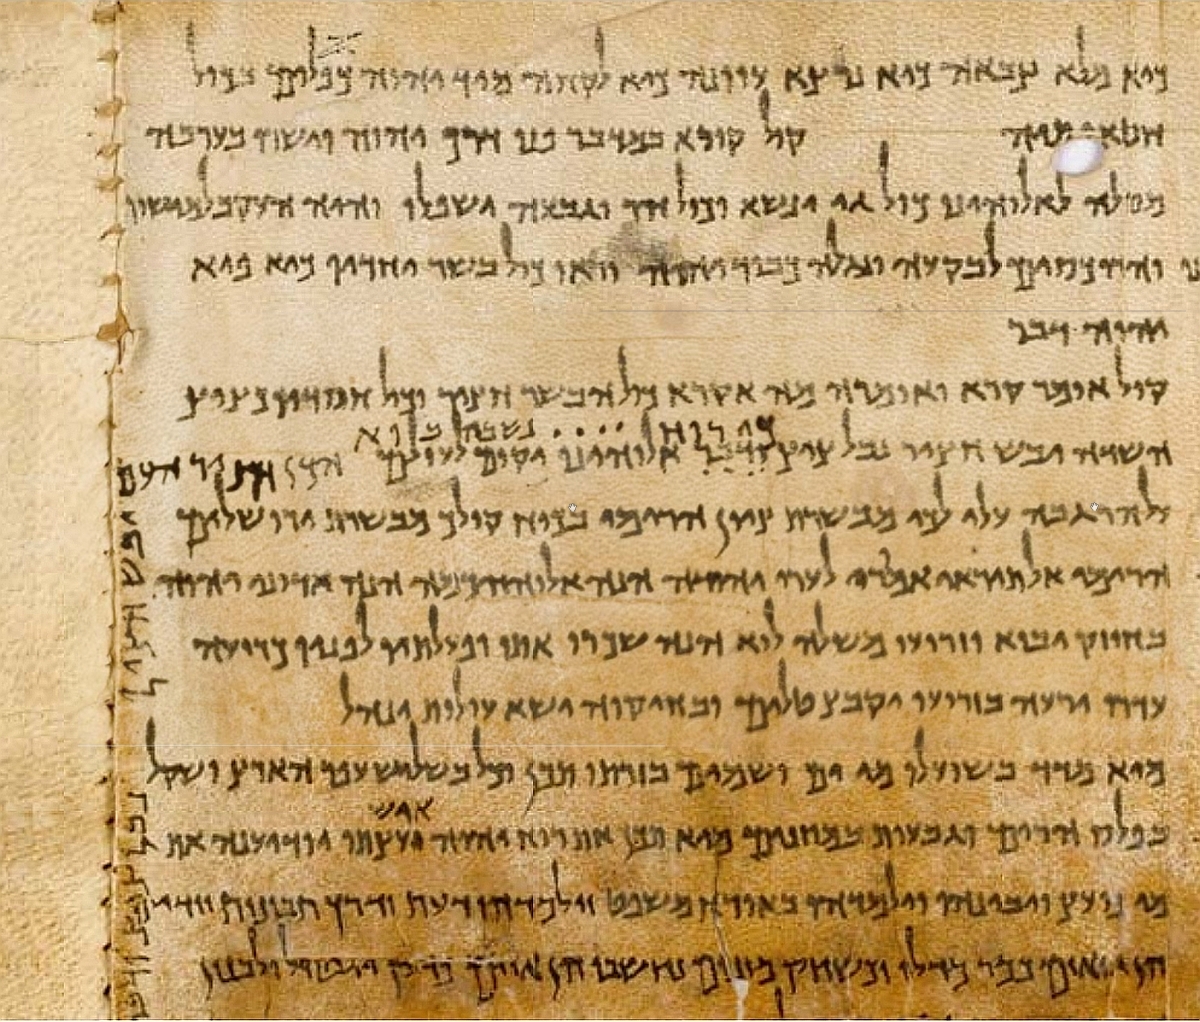 כיא מלא צבאה כיא נרצא עוונה כיא לקחה מיד יהוה כפלים בכול
קול קורא במדבר פנו דרך יהוה וישרו בערבה
מסלה לאלוהינו כול גי ינשא וכול הר וגבעה ישפלו והיה העקב למישור
והרוכסים לבקעה ונגלה כבוד יהוה וראו כול בשר יחדיו כיא פיא
יהוה דבר
קול אומר קרא ואומרה מה אקרא כול הבשר חציר וכול חסדיו כציץ
כי רוח .... נשבה בוא
השדה יבש חציר נבל ציץ ודבר אלוהינו יקום לעולם הכן חציר העם
על הר גבה עלי לכי מבשרת ציון הרימי בכוח קולך מבשרת ירושלים
הרימי אל תיראי אמרי לערי יהודה הנה אלוהיכמה הנה אדוני יהוה
בחוזק יבוא וזרועו משלה לוא הנה שכרו אתו ופעלתיו לפניו כרועה
עדרו ירעה בזרועו יקבץ טלים ובחיקוה ישא עולות ינהל
מיא מדד בשועלו מי ים ושמים בזרתו תכן וכל בשליש עפר הארץ ושקל
איש
בפלס הרים וגבעות במאזנים מיא תכן את רוח יהוה ועצתו יודיענה את
מי נועץ ויבינהו וילמדהו באורח משפט וילמדהו דעת ודרך תבונות
הן גואים כמר מדלי וכשחק מוזנים נחשבו הן איים כדק יטול ולבנון
יבש חציר נבל ציץ ודבר